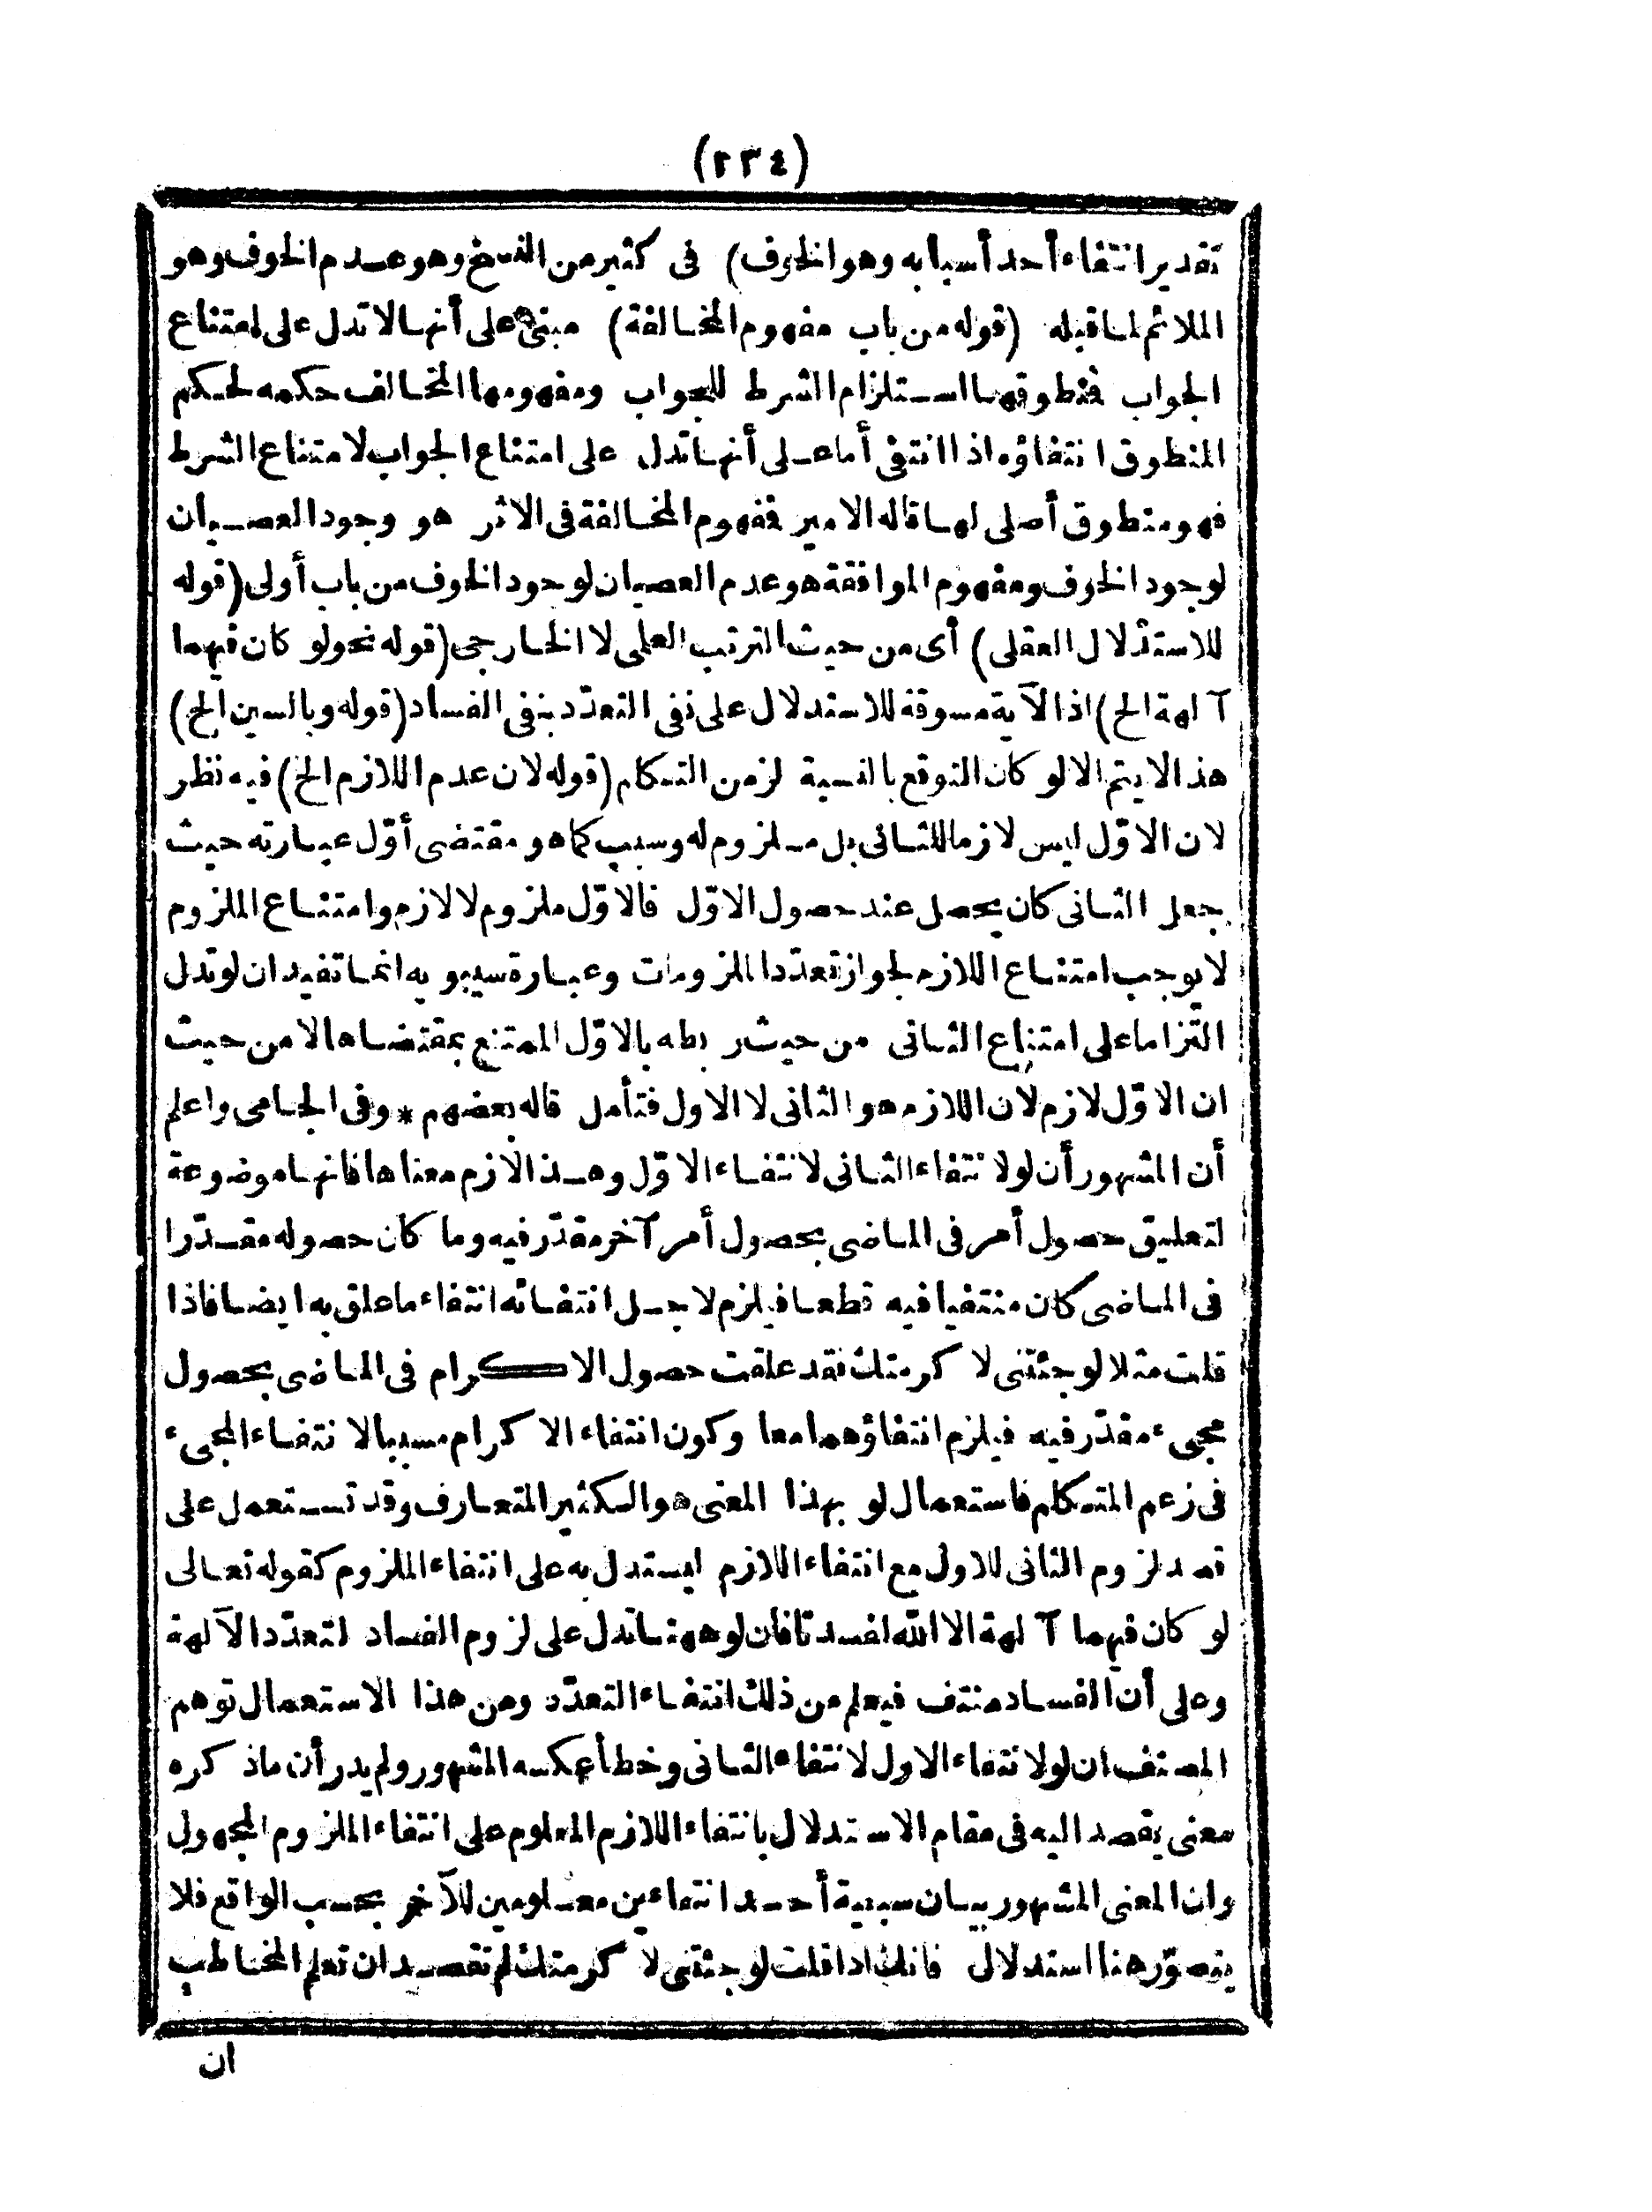 (٢٣٤)
تقدير انتفاء أحد أسبابه وهو الخوف) فى كثير من النسخ وهو عدم الخوف وهو
الملائم لما قبله (قوله من باب مفهوم المخالفة) مبنى على أنها لا تدل على امتناع
الجواب فمنطوقها استلزام الشرط للجواب ومفهومها المخالف حكمه لحكم
المنطوق انتفاؤه اذا انتفى أما على أنها تدل على امتناع الجواب لامتناع الشرط
فهو منطوق أصلى لها قاله الامير فمفهوم المخالفة فى الاثر هو وجود العصيان
لوجود الخوف ومفهوم الموافقة هو عدم العصيان لوجود الخوف من باب أولى (قوله
للاستدلال العقلى) أى من حيث الترتب العلمى لا الخارجى (قوله نحو لو كان فيهما
آلهة الخ) اذ الآية مسوقة للاستدلال على نفى التعدّد بنفى الفساد (قوله وبالسين الخ)
هذا لا يتم الا لو كان التوقع بالنسبة لزمن التكلم (قوله لان عدم اللازم الخ) فيه نظر
لان الاوّل ليس لازما للثانى بل ملزوم له وسبب كما هو مقتضى أوّل عبارته حيث
جعل الثانى كان يحصل عند حصول الاوّل فالاوّل ملزوم لا لازم وامتناع الملزوم
لا يوجب امتناع اللازم لجواز تعدّد الملزومات وعبارة سيبويه انما تفيد ان لو تدل
التزاما على امتناع الثانى من حيث ربطه بالاوّل الممتنع بمقتضاها لا من حيث
ان الاوّل لازم لان اللازم هو الثانى لا الاول فتأمل قاله بعضهم * وفى الجامى واعلم
أن المشهور أن لو لانتفاء الثانى لانتفاء الاوّل وهذا لازم معناها فانها موضوعة
لتعليق حصول أمر فى الماضى بحصول أمر آخر مقدّر فيه وما كان حصوله مقدّرا
فى الماضى كان منتفيا فيه قطعا فيلزم لاجل انتفائه انتفاء ما علق به ايضا فاذا
قلت مثلا لو جئتنى لاكرمتك فقد علقت حصول الاكرام فى الماضى بحصول
مجىء مقدّر فيه فيلزم انتفاؤهما معا وكون انتفاء الاكرام مسببا لانتفاء المجىء
فى زعم المتكلم فاستعمال لو بهذا المعنى هو الكثير المتعارف وقد تستعمل على
قصد لزوم الثانى للاول مع انتفاء اللازم ليستدل به على انتفاء الملزوم كقوله تعالى
لو كان فيهما آلهة الا الله لفسدتا فان لو ههنا تدل على لزوم الفساد لتعدّد الآلهة
وعلى أن الفساد منتف فيعلم من ذلك انتفاء التعدّد ومن هذا الاستعمال توهم
المصنف ان لو لانتفاء الاول لانتفاء الثانى وخطأ عكسه المشهور ولم يدر أن ما ذكره
معنى يقصد اليه فى مقام الاستدلال بانتفاء اللازم المعلوم على انتفاء الملزوم المجهول
وان المعنى المشهور بيان سببية أحد انتفاءين معلومين للآخر بحسب الواقع فلا
يتصوّر هنا استدلال فانك اذا قلت لو جئتنى لاكرمتك لم تقصد ان تعلم المخاطب
ان